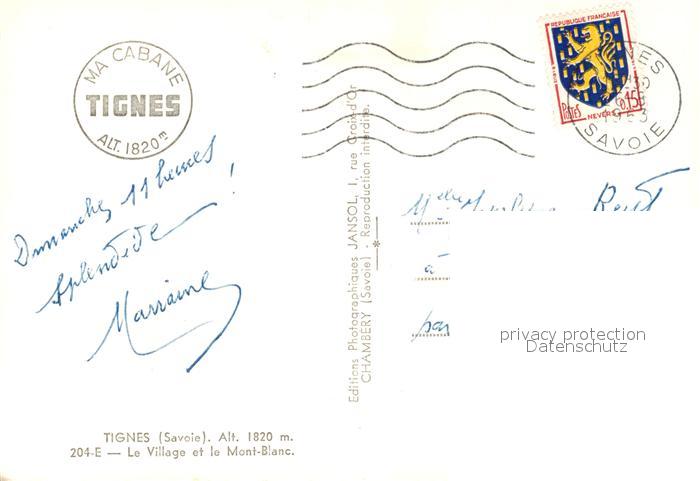 MA CABANE
TIGNES
ALT. 1820 m
REPUBLIQUE FRANÇAISE
POSTES
NEVERS
0,15
SAVOIE
Dimanche, 11 heures
splendide !
Marraine
Editions Photographiques JANSOL, 1, rue Croix-d'Or
CHAMBERY (Savoie) - Reproduction interdite.
à
par
privacy protection
Datenschutz
TIGNES (Savoie). Alt. 1820 m.
204-E — Le Village et le Mont-Blanc.